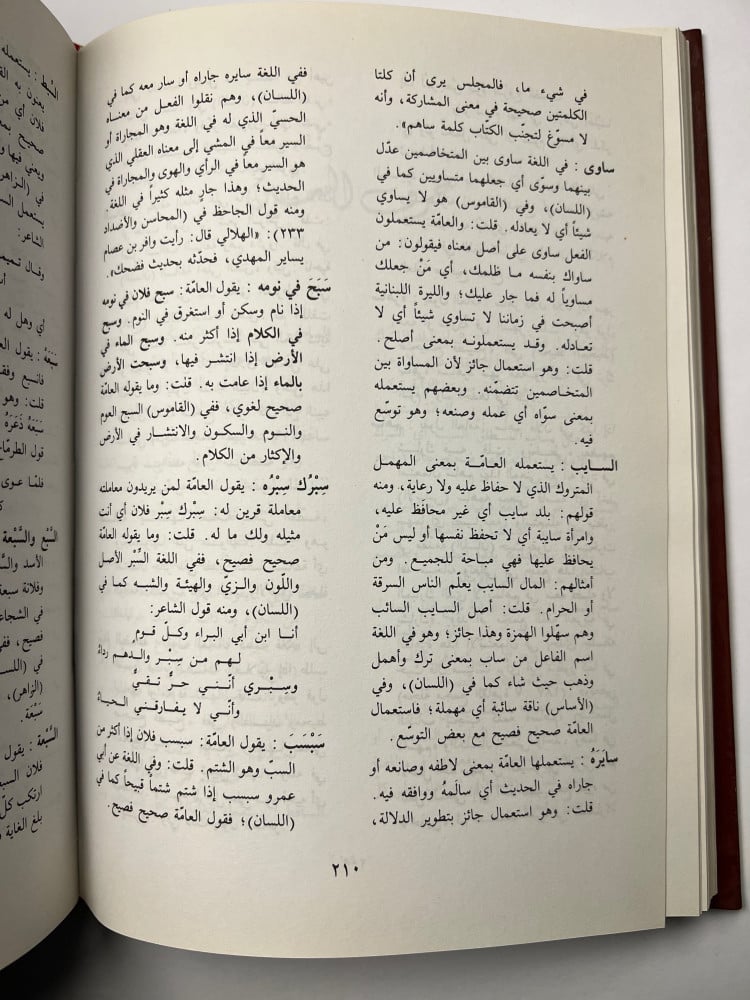 في شيء ما، فالمجلس يرى أن كلتا
الكلمتين صحيحة في معنى المشاركة، وأنه
لا مسوّغ لتجنّب الكتاب كلمة ساهم».
ساوى : في اللغة ساوى بين المتخاصمين عدّل
بينهما وسوّى أي جعلهما متساويين كما في
(اللسان)، وفي (القاموس) هو لا يساوي
شيئاً أي لا يعادله. قلت: والعامّة يستعملون
الفعل ساوى على أصل معناه فيقولون: من
ساواك بنفسه ما ظلمك، أي مَنْ جعلك
مساوياً له فما جار عليك؛ والليرة اللبنانية
أصبحت في زماننا لا تساوي شيئاً أي لا
تعادله. وقد يستعملونه بمعنى أصلح.
قلت: وهو استعمال جائز لأن المساواة بين
المتخاصمين تتضمّنه. وبعضهم يستعمله
بمعنى سوّاه أي عمله وصنعه؛ وهو توسّع
فيه.
السايب : يستعمله العامّة بمعنى المهمل
المتروك الذي لا حفاظ عليه ولا رعاية، ومنه
قولهم: بلد سايب أي غير محافَظ عليه،
وامرأة سايبة أي لا تحفظ نفسها أو ليس مَنْ
يحافظ عليها فهي مباحة للجميع. ومن
أمثالهم: المال السايب يعلّم الناس السرقة
أو الحرام. قلت: أصل السايب السائب
وهم سهّلوا الهمزة وهذا جائز؛ وهو في اللغة
اسم الفاعل من ساب بمعنى ترك وأهمل
وذهب حيث شاء كما في (اللسان)، وفي
(الأساس) ناقة سائبة أي مهملة؛ فاستعمال
العامّة صحيح فصيح مع بعض التوسّع.
سايَرَهُ : يستعملها العامّة بمعنى لاطفه وصانعه أو
جاراه في الحديث أي سالَمهُ ووافقه فيه.
قلت: وهو استعمال جائز بتطوير الدلالة،
ففي اللغة سايره جاراه أو سار معه كما في
(اللسان)، وهم نقلوا الفعل من معناه
الحسيّ الذي له في اللغة وهو المجاراة أو
السير معاً في المشي إلى معناه العقلي الذي
هو السير معاً في الرأي والهوى والمجاراة في
الحديث؛ وهذا جارٍ مثله كثيراً في اللغة.
ومنه قول الجاحظ في (المحاسن والأضداد
٢٣٣): «الهلالي قال: رأيت وافر بن عصام
يساير المهدي، فحدّثه بحديث فضحك».
سَبَحَ في نومه : يقول العامّة: سبح فلان في نومه
إذا نام وسكن أو استغرق في النوم. وسبح
في الكلام إذا أكثر منه. وسبح الماء في
الأرض إذا انتشر فيها، وسبحت الأرض
بالماء إذا عامت به. قلت: وما يقوله العامّة
صحيح لغوي، ففي (القاموس) السبح العوم
والنوم والسكون والانتشار في الأرض
والإكثار من الكلام.
سِبْرُك سِبْرُه : يقول العامّة لمن يريدون معاملته
معاملة قرين له: سِبْرك سِبْر فلان أي أنت
مثيله ولك ما له. قلت: وما يقوله العامّة
صحيح فصيح، ففي اللغة السِّبْر الأصل
واللّون والزيّ والهيئة والشبه كما في
(اللسان)، ومنه قول الشاعر:
أنا ابن أبي البراء وكلّ قوم
لهم من سِبْر والدهم رداءُ
وسِبْري أنّني حرٌّ تقيٌّ
وأنّي لا يفارقني الحياءُ
سَبْسَبَ : يقول العامّة: سبسب فلان إذا أكثر من
السبّ وهو الشتم. قلت: وفي اللغة عن أبي
عمرو سبسب إذا شتم شتماً قبيحاً كما في
(اللسان)؛ فقول العامّة صحيح فصيح.
٢١٠